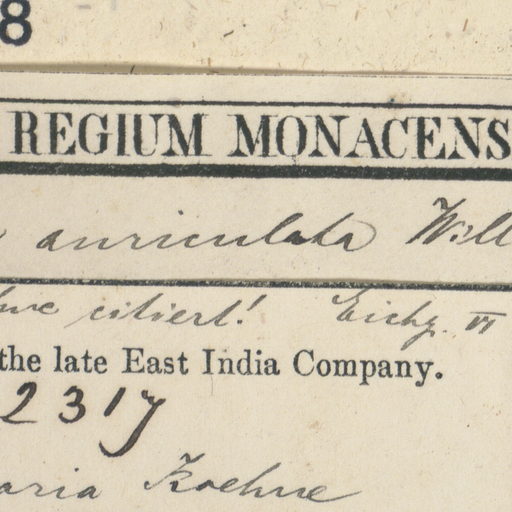 8
REGIUM MONACENS
auriculata Will
citiert!
the late East India Company.
2317
aria Koehne